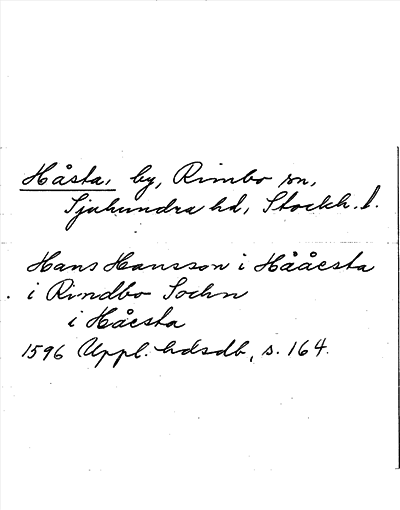 Håsta, by, Rimbo sn,
Sjuhundra hd, Stockh. l.
Hans Hansson i Hååesta
i Rindbo Sochn
i Håesta
1596 Uppl. hdsdb, s. 164.